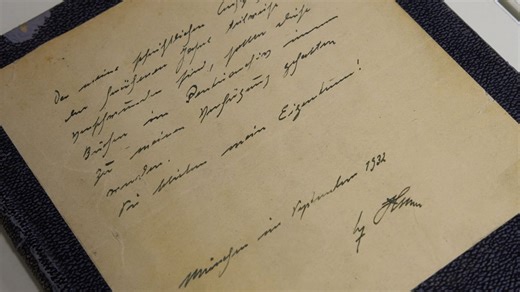 Da meine schriftlichen
der früheren Jahre teilweise
verschwunden sind, sollen diese
Bücher im Parteiarchiv immer
zu meiner Verfügung gehalten
werden.
Sie bleiben mein Eigentum!
München im September 1932